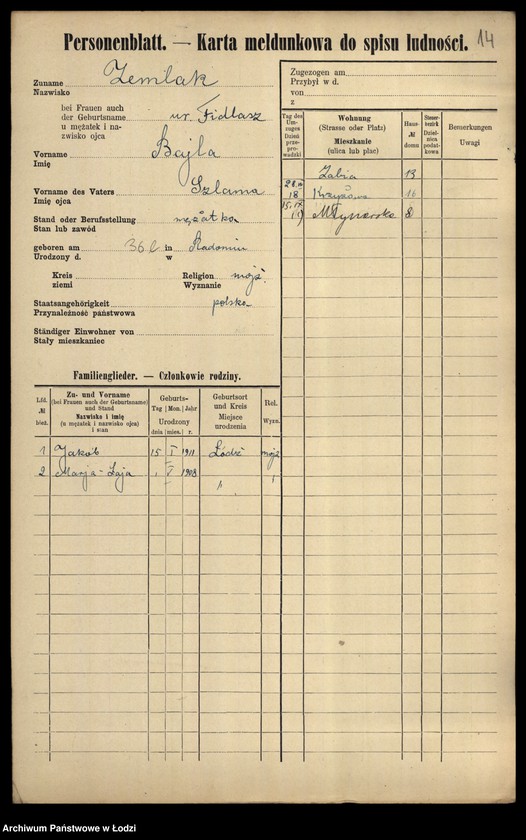 Personenblatt. — Karta meldunkowa do spisu ludności.
14
Zuname Zemlak
Nazwisko
bei Frauen auch
der Geburtsname ur. Fidlasz
u mężatek i na-
zwisko ojca
Vorname Bajla
Imię
Vorname des Vaters Szlama
Imię ojca
Stand oder Berufsstellung mężatka
Stan lub zawód
geboren am 36 l in Radomiu
Urodzony d. w
Kreis Religion mojż
ziemi Wyznanie
Staatsangehörigkeit polska
Przynależność państwowa
Ständiger Einwohner von
Stały mieszkaniec
Zugezogen am
Przybył w d.
von
z
Tag des Um-zuges Dzień prze-pro-wadzki
Wohnung
(Strasse oder Platz)
Mieszkanie
(ulica lub plac)
Haus-
№
domu
Steuer-bezirk Dziel-nica podat-kowa
Bemerkungen
Uwagi
Żabia 13
18 Krzyżowa 16
15.IX 19 Młynarska 8
Familienglieder. — Członkowie rodziny.
Lfd.
№
bież.
Zu- und Vorname
(bei Frauen auch der Geburtsname)
und Stand
Nazwisko i imię
(u mężatek i nazwisko ojca)
i stan
Geburts-
Tag Mon. Jahr
Urodzony
dnia mies. r.
Geburtsort
und Kreis
Miejsce
urodzenia
Rel.
Wyzn.
1 Jakób 15 I 1911 Łódź mojż
2 Marja-Łaja V 1908 "
Archiwum Państwowe w Łodzi